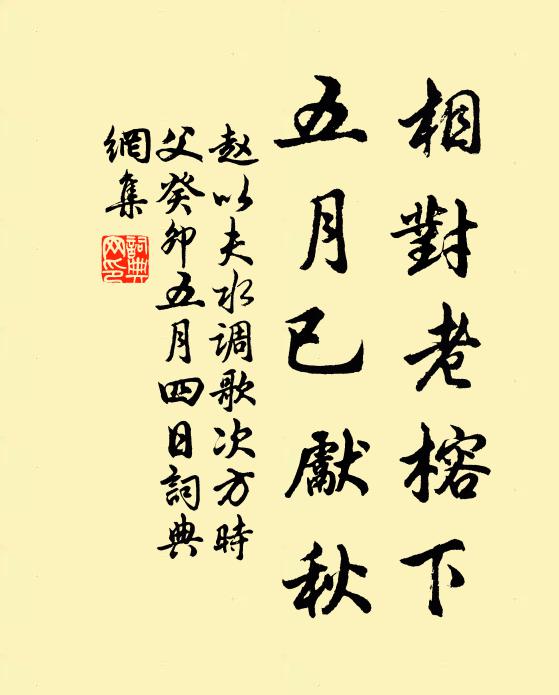 相對老榕下
五月已獻秋
赵以夫水调歌次方時
父癸卯五月四日詞典
網集
詞典
网印